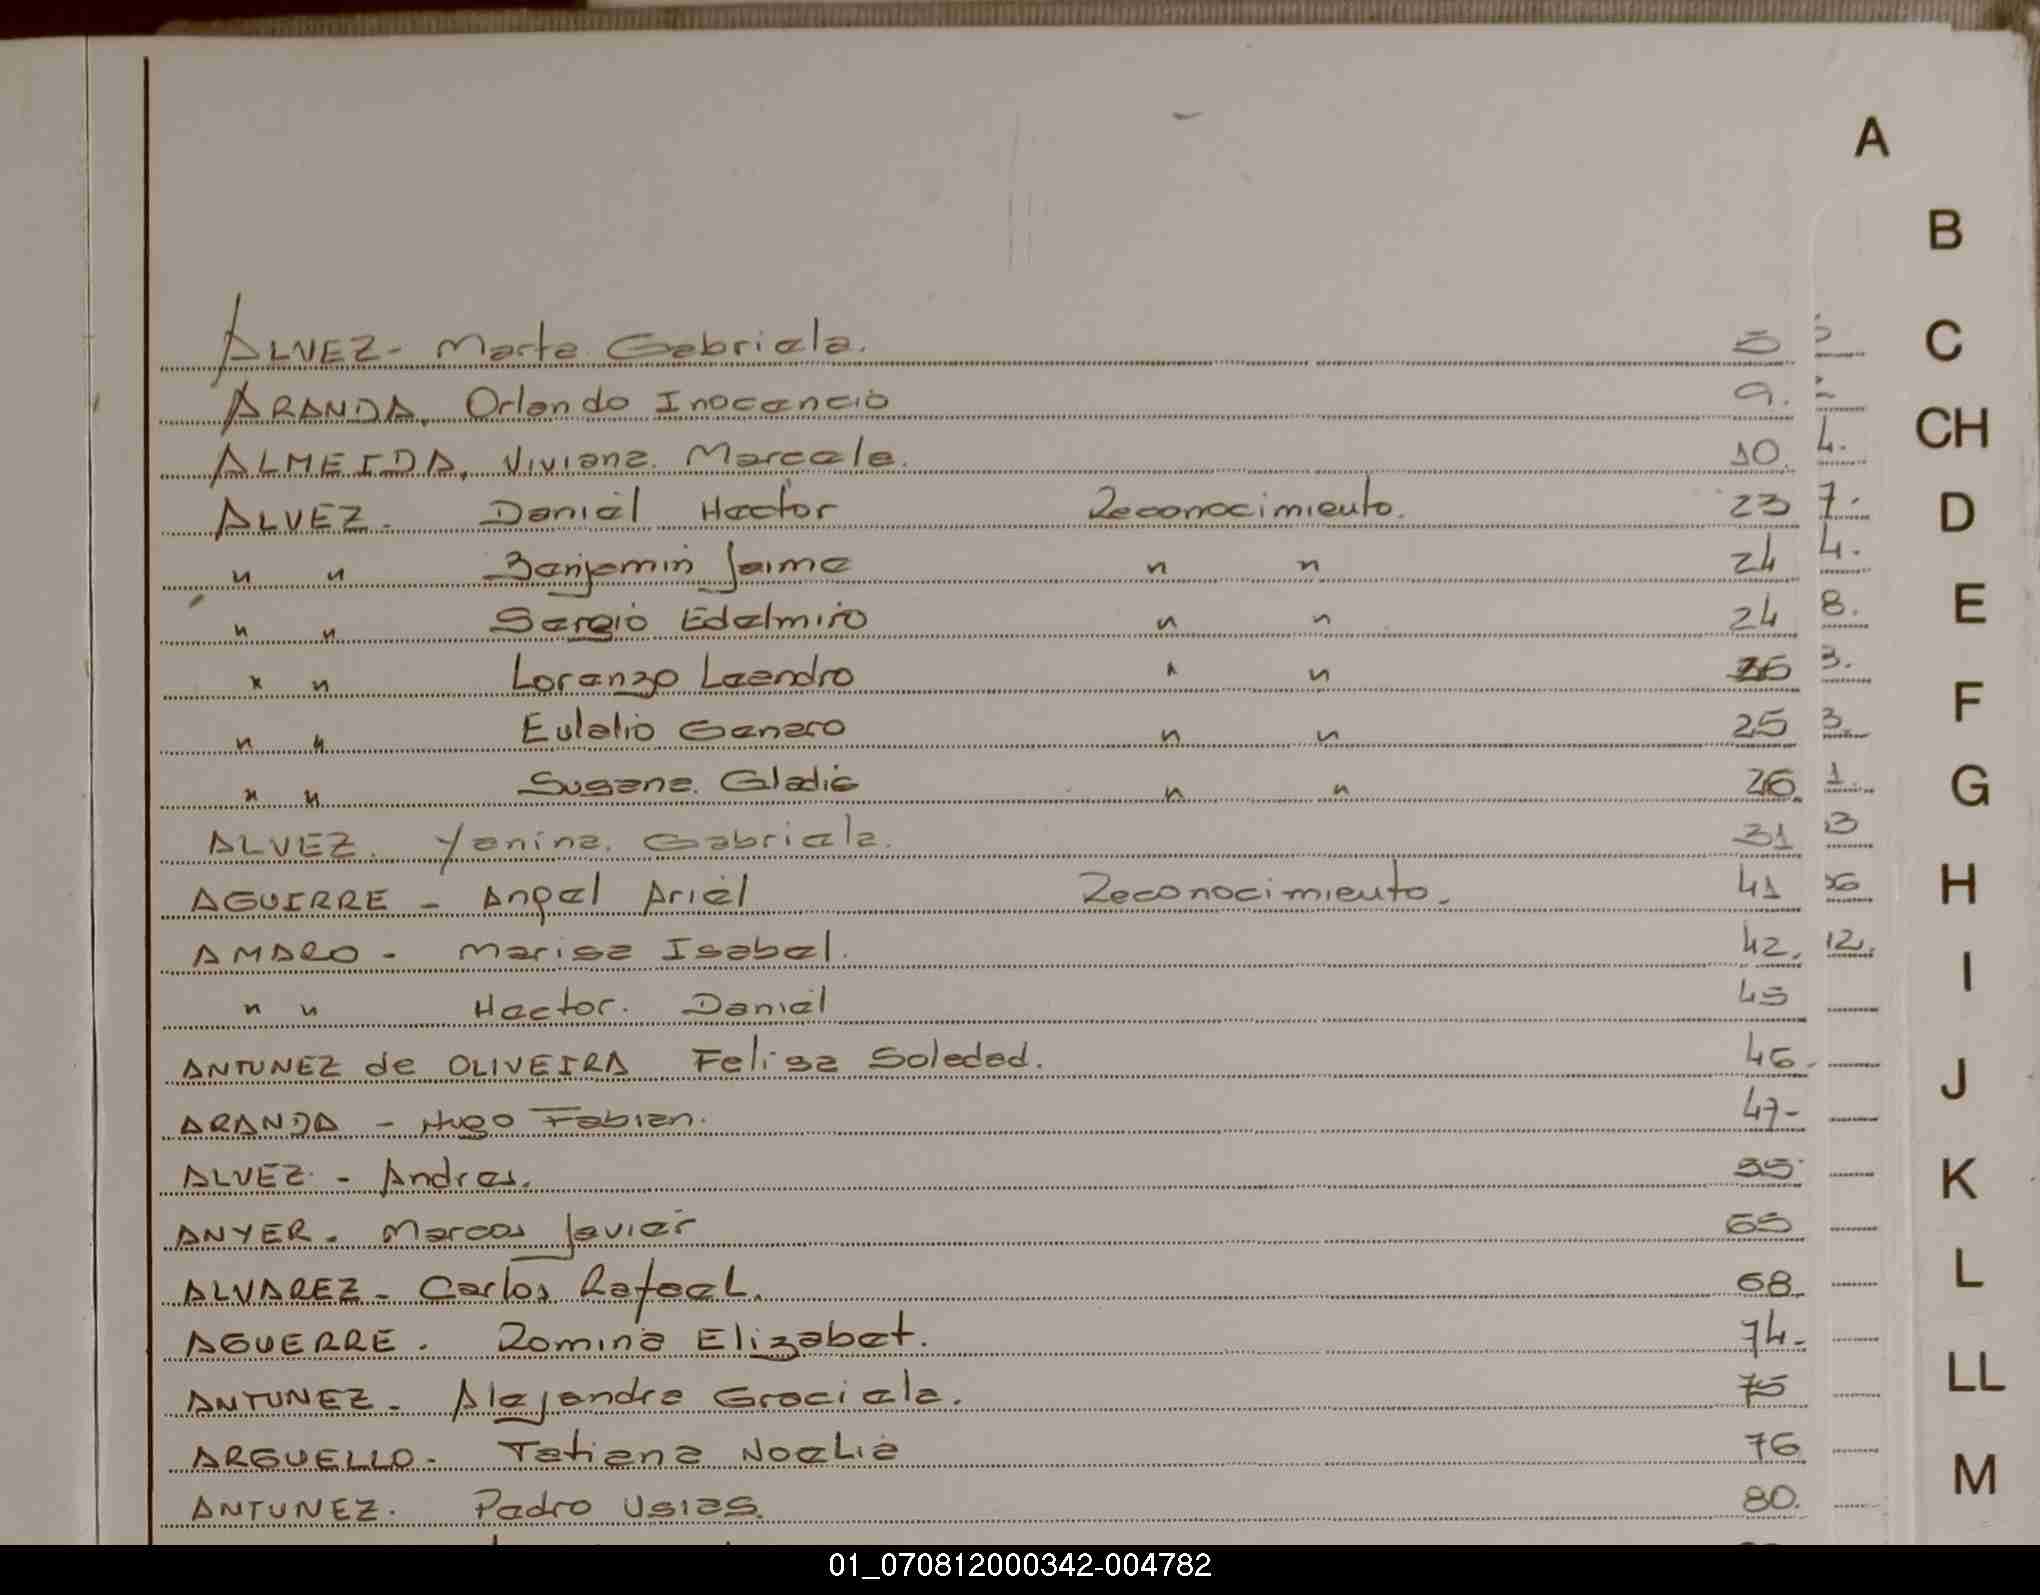 A
B
C
CH
D
E
F
G
H
I
J
K
L
LL
M
ALVEZ- Marta Gabriela. 5
ARANDA, Orlando Inocencio 9.
ALMEIDA, Viviana Marcela. 10. 4.
ALVEZ. Daniel Hector Reconocimiento. 23 7.
" " Benjamin Jaime " " 24 4.
" " Sergio Edelmiro " " 24 8.
" " Lorenzo Leandro " " 3.
" " Eulalio Genaro " " 25 3.
" " Susana Gladis " " 26. 1.
ALVEZ. Yanina Gabriela. 31 13
AGUIRRE - Angel Ariel Reconocimiento. 41
AMARO - Marisa Isabel. 42. 12.
" " Hector. Daniel 45
ANTUNEZ de OLIVEIRA Felisa Soledad. 46.
ARANDA - Hugo Fabian. 47-
ALVEZ - Andres. 55
ANYER. Marcos Javier 65
ALVAREZ - Carlos Rafael. 68.
AGUERRE. Romina Elizabet. 74.
ANTUNEZ - Alejandra Graciela. 75
ARGUELLO - Tatiana Noelia 76
ANTUNEZ. Pedro Usias. 80.
01_070812000342-004782